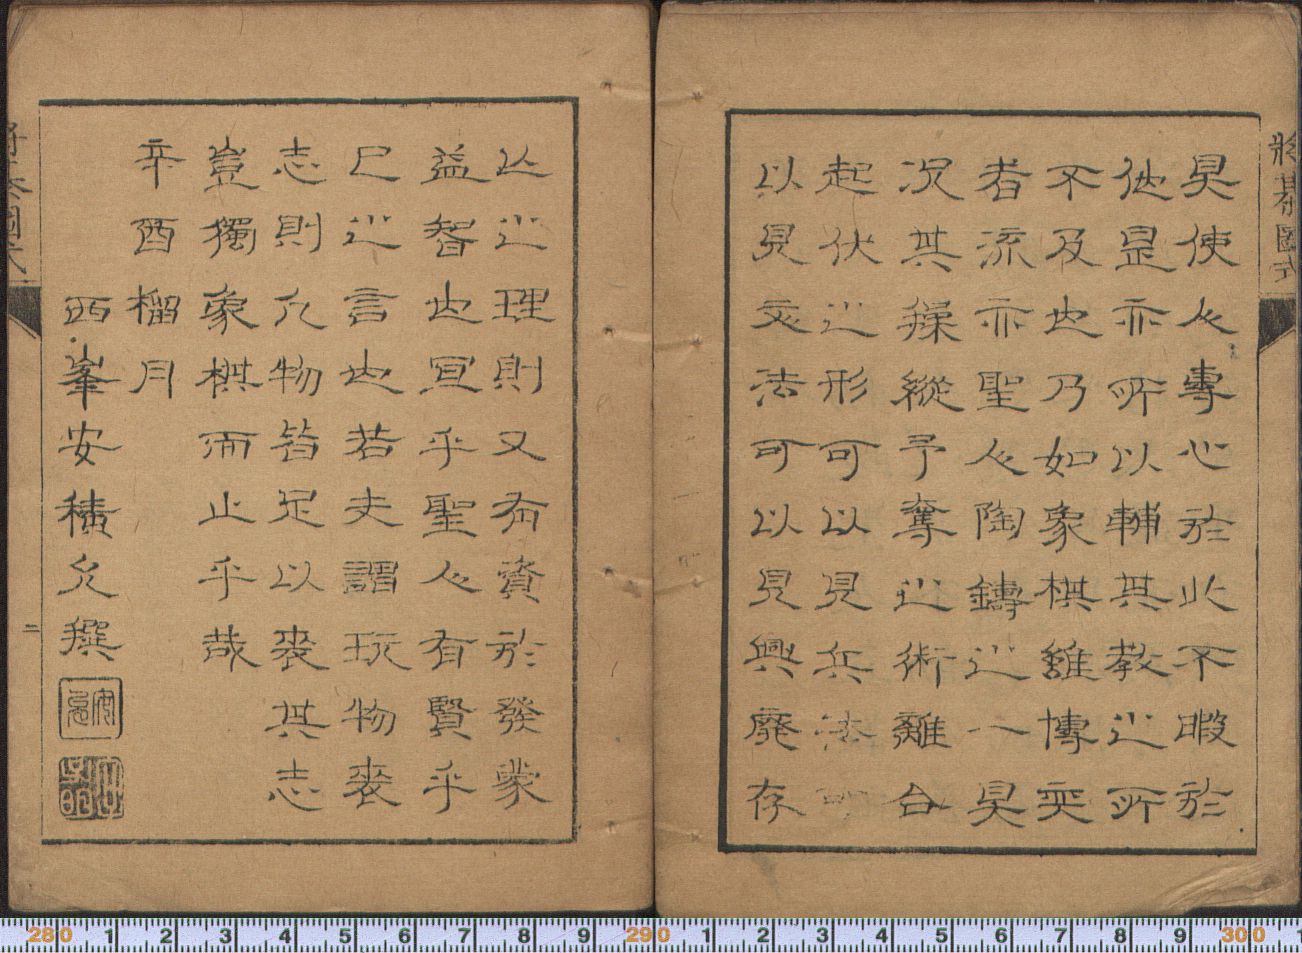 將棊圖式
具使人專心於此不暇於
他是亦所以輔其教之所
不及也乃如象棋雖博奕
者流亦聖人陶鑄之一具
况其操縱予奪之術離合
起伏之形可以見兵法可
以見交法可以見興廢存
亡之理則又有資於發蒙
益智也宜乎聖人有賢乎
已之言也若夫謂玩物喪
志則凡物皆足以喪其志
豈獨象棋而止乎哉
辛酉榴月
西峯安積允撰
二
280 1 2 3 4 5 6 7 8 9 290 1 2 3 4 5 6 7 8 9 300